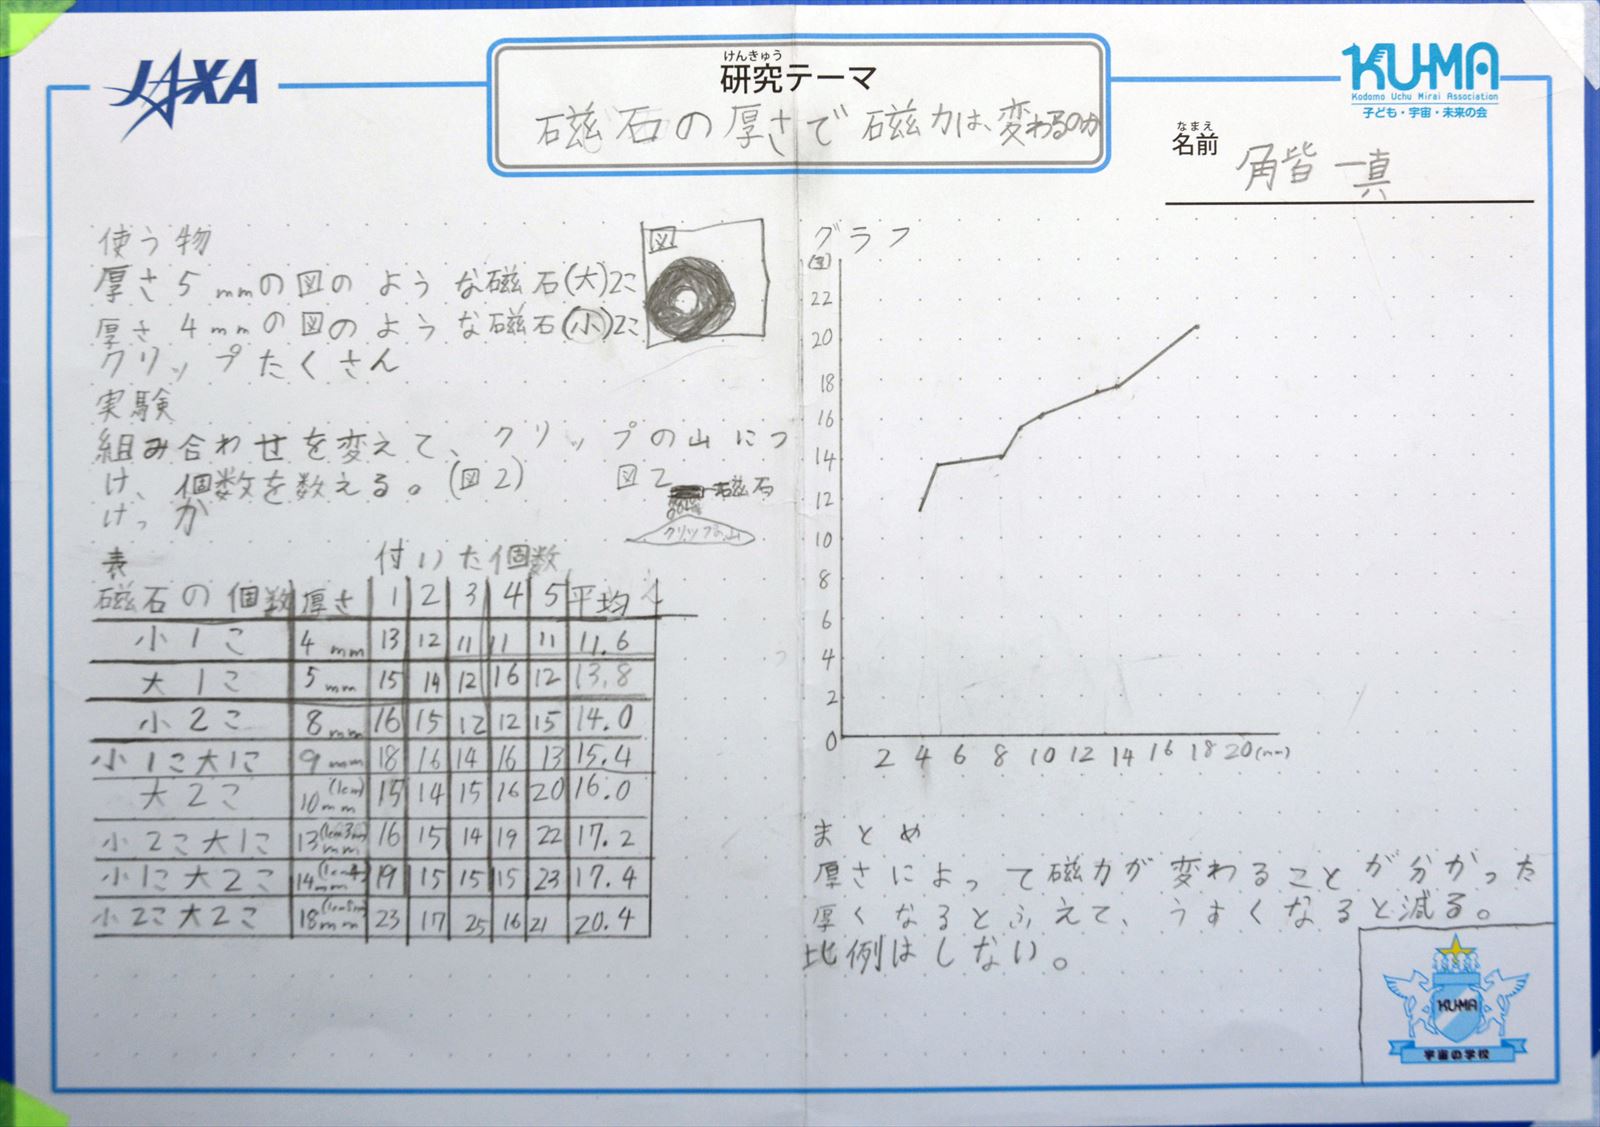 JAXA
けんきゅう
研究テーマ
磁石の厚さで磁力は、変わるのか
KU-MA
Kodomo Uchu Mirai Association
子ども・宇宙・未来の会
なまえ
名前
角皆 一真
使う物
厚さ5mmの図のような磁石(大)2こ
厚さ4mmの図のような磁石(小)2こ
クリップたくさん
図
実験
組み合わせを変えて、クリップの山につ
け、個数を数える。(図2)
図2
磁石
クリップの山
けっか
表
付いた個数
磁石の個数 厚さ 1 2 3 4 5 平均
小1こ 4mm 13 12 11 11 11 11.6
大1こ 5mm 15 14 12 16 12 13.8
小2こ 8mm 16 15 12 12 15 14.0
小1こ大1こ 9mm 18 16 14 16 13 15.4
大2こ 10mm(1cm) 15 14 15 16 20 16.0
小2こ大1こ 13mm(1cm3mm) 16 15 14 19 22 17.2
小1こ大2こ 14mm 19 15 15 15 23 17.4
小2こ大2こ 18mm 23 17 25 16 21 20.4
グラフ
22
20
18
16
14
12
10
8
6
4
2
0
2 4 6 8 10 12 14 16 18 20(mm)
まとめ
厚さによって磁力が変わることが分かった
厚くなるとふえて、うすくなると減る。
比例はしない。
KU-MA
宇宙の学校